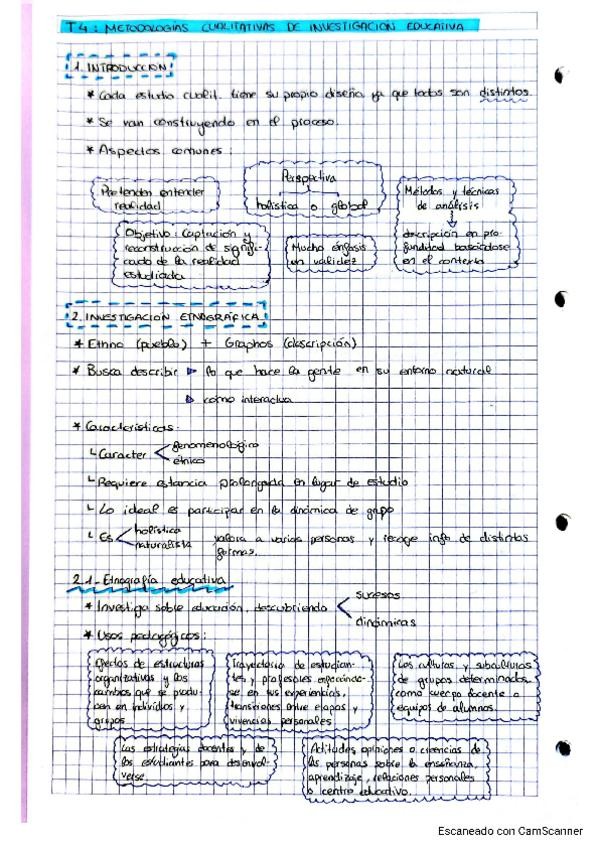 T4: METODOLOGÍAS CUALITATIVAS DE INVESTIGACIÓN EDUCATIVA
1. INTRODUCCIÓN
* Cada estudio cualit. tiene su propio diseño ya que todos son distintos.
* Se van construyendo en el proceso.
* Aspectos comunes:
Pretenden entender
realidad
Perspectiva
holística o global
Métodos y técnicas
de análisis
descripción en pro-
fundidad basándose
en el contexto
Objetivo: Captación y
reconstrucción de signifi-
cado de la realidad
estudiada
Mucho énfasis
en validez
2. INVESTIGACIÓN ETNOGRÁFICA
* Ethno (pueblo) + Graphos (descripción)
* Busca describir lo que hace la gente en su entorno natural
como interactua
* Características.
Caracter
fenomenológico
étnico
Requiere estancia prolongada en lugar de estudio
Lo ideal es participar en la dinámica de grupo
Es
holística
naturalista
valora a varias personas y recoge info de distintas
formas.
2.1- Etnografía educativa
* Investiga sobre educación, descubriendo
sucesos
dinámicas
* Usos pedagógicos:
Efectos de estructuras
organitativas y los
cambios que se produ-
cen en individuos y
grupos
Trayectoria de estudian-
tes y profesores
se en sus experiencias,
transiciones entre etapas y
vivencias personales
Las culturas y subculturas
de grupos determinados
como cuerpo docente o
equipos de alumnos.
Las estrategias docentes y de
los estudiantes para desenvol-
verse.
Actitudes opiniones o creencias de
las personas sobre la enseñanza,
aprendizaje, relaciones personales
o centro educativo.
Escaneado con CamScanner